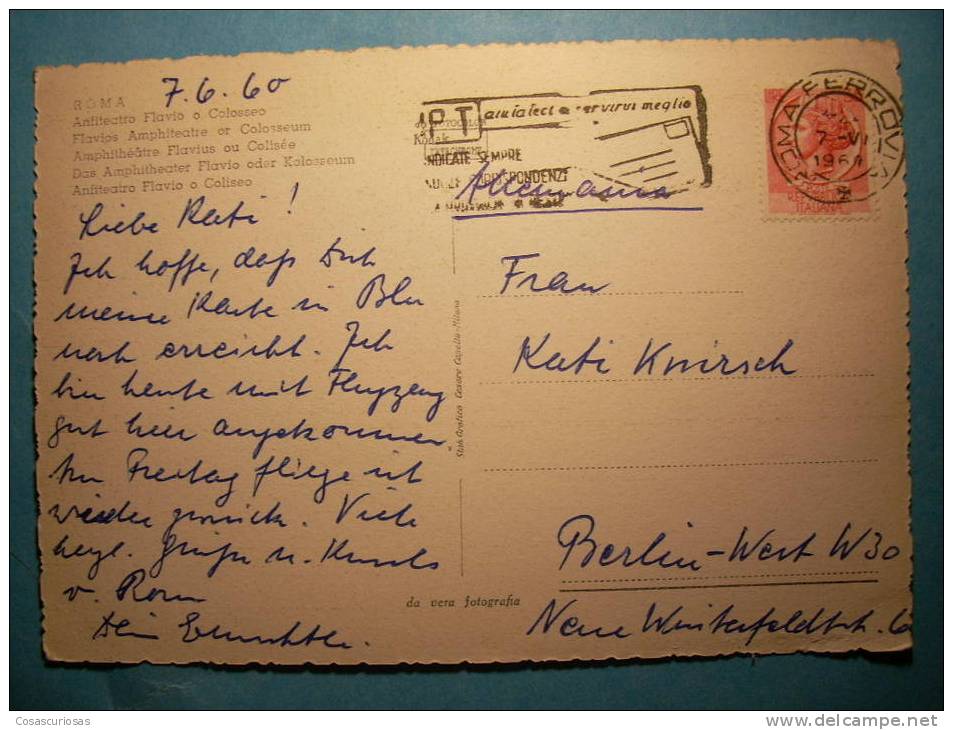 7.6.60
ROMA
Anfiteatro Flavio o Colosseo
Flavios Amphiteatre or Colosseum
Amphithéâtre Flavius ou Colisée
Das Amphitheater Flavio oder Kolosseum
Anfiteatro Flavio o Coliseo
Liebe Kati!
Ich hoffe, daß Dich
meine Karte in Bln
noch erreicht. Ich
bin heute mit Flugzeug
gut hier angekommen
Am Freitag fliege ich
wieder zurück. Viele
herzl. Grüße u. Kuss
v. Rom
Dein
PT
aiutateci a servirvi meglio
Kodak
INDICATE SEMPRE
CORRISPONDENZE
Allemania
ROMA FERROVIA
7-VI
1960
REPVBBLICA
ITALIANA
Frau
Kati Knirsch
Berlin-West W30
Neue Winterfeldtstr. 6
Stab. Grafico Cesare Capello-Milano
da vera fotografia
Cosascuriosas
http://www.delcampe.net